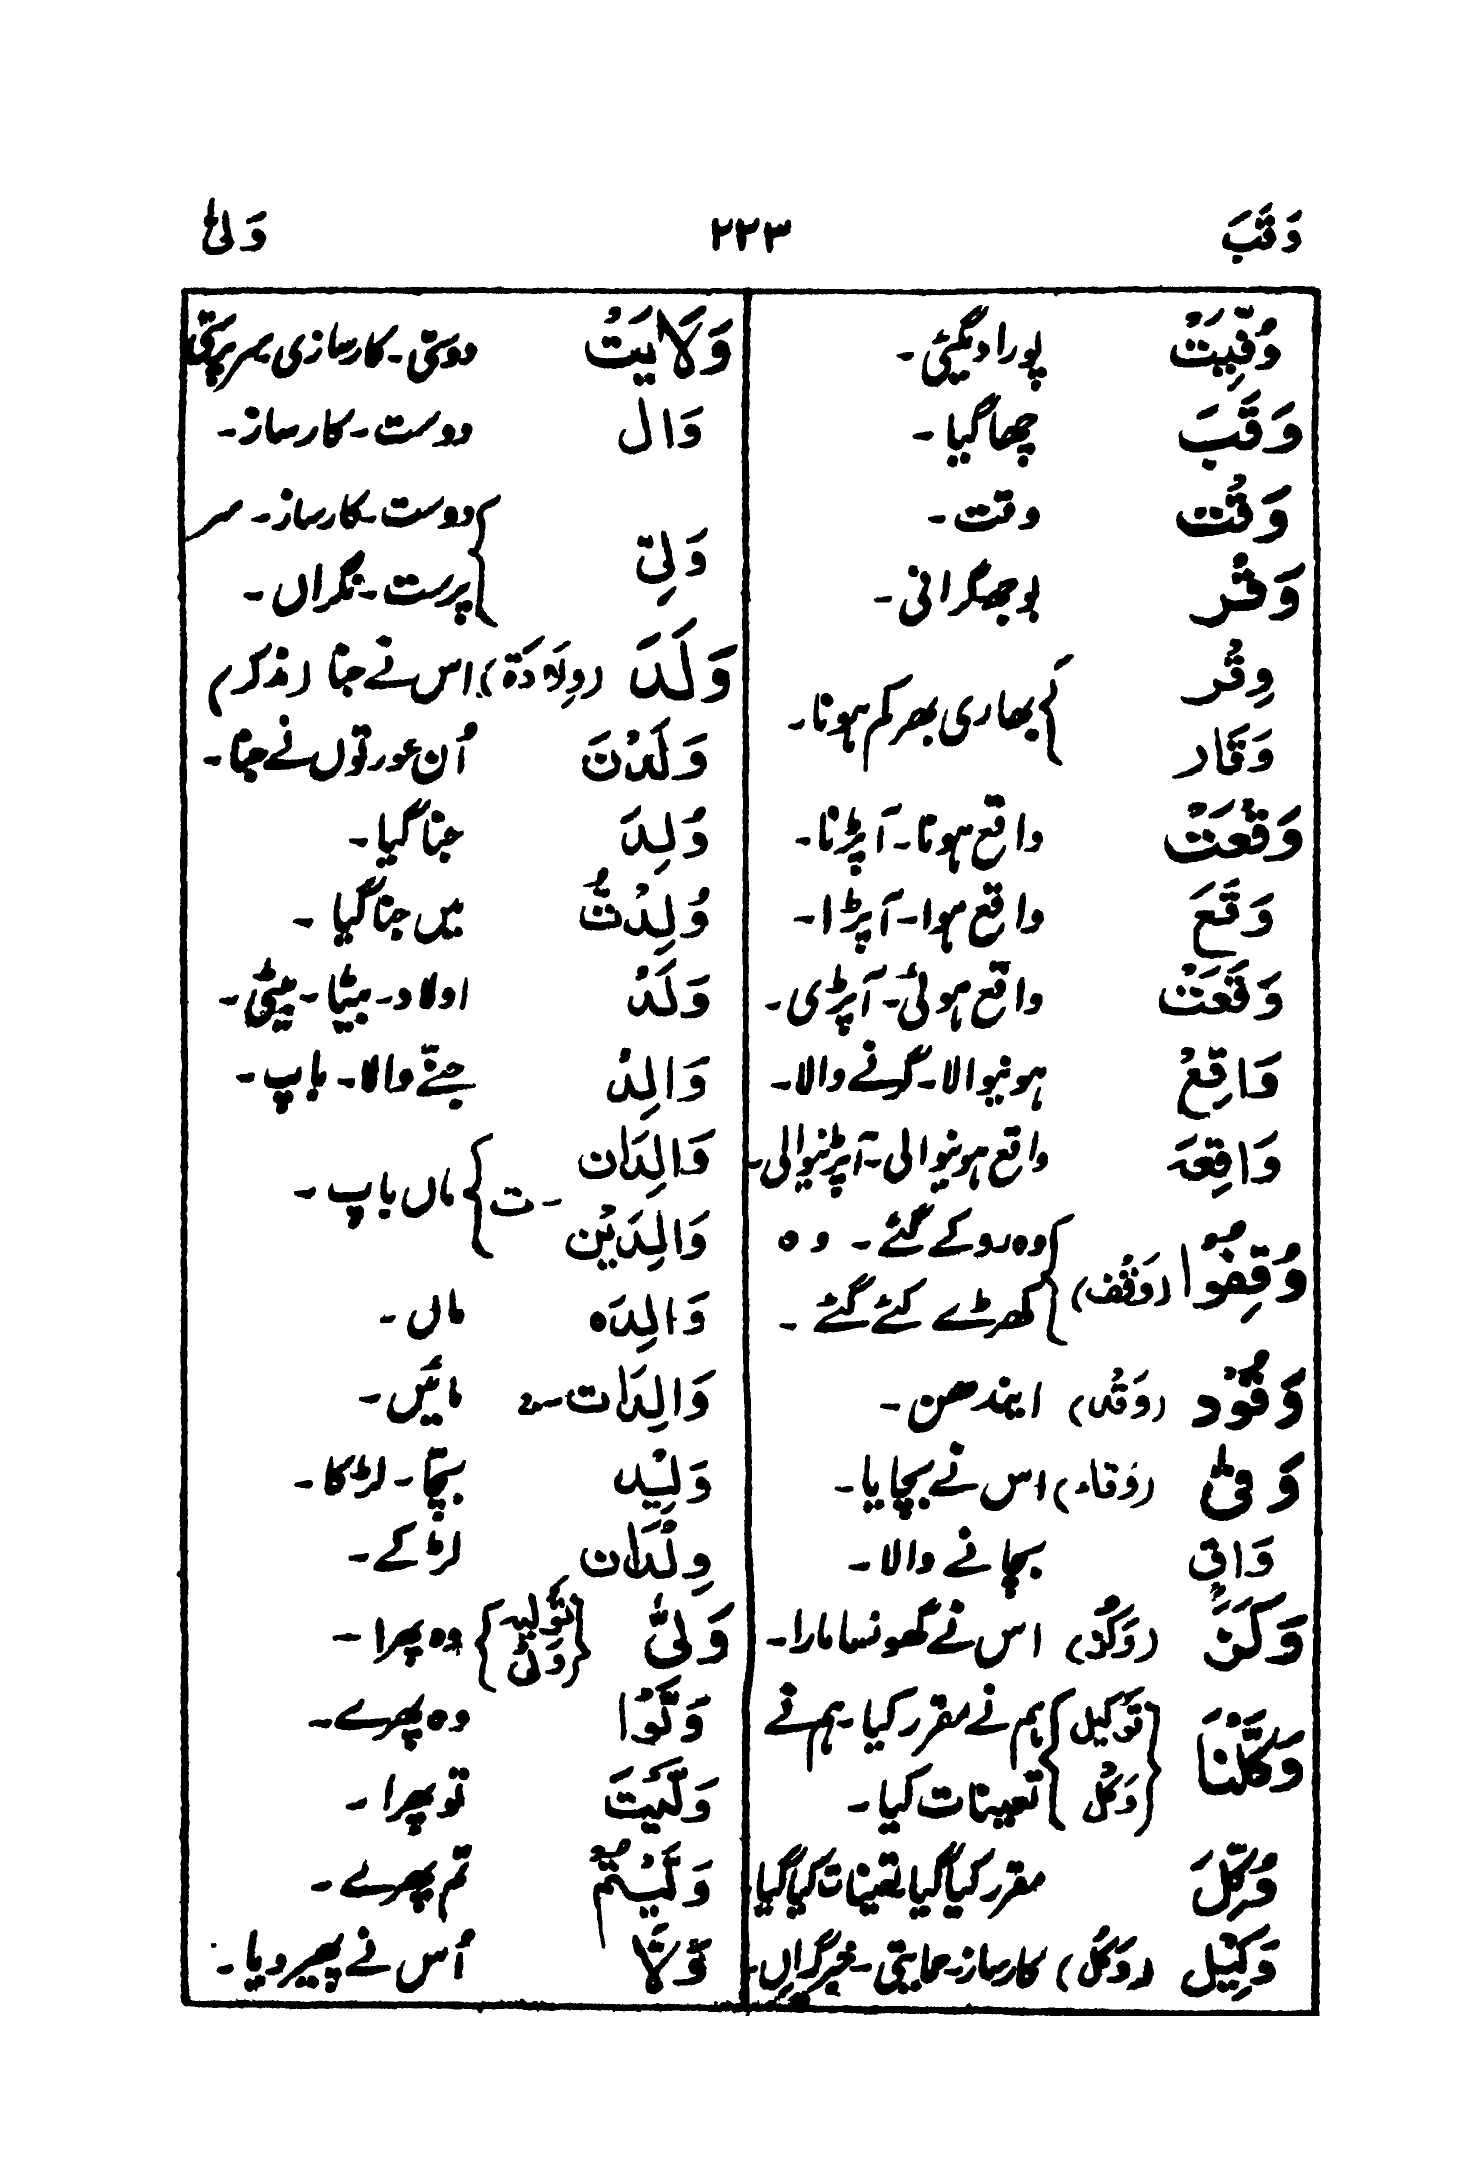 وَقَبَ ۲۲۳ وَلیٰ
وُفِّیَتْ پورا دیگیٔی۔
وَقَبَ چھا گیا۔
وَقْت وقت۔
وَقْر بوجھ گرانی۔
وِقْر
وَقَار } بھاری بھر کم ہونا۔
وَقْعَتْ واقع ہونا۔ آ پڑنا۔
وَقَعَ واقع ہوا۔ آ پڑا۔
وَقَعَتْ واقع ہوئی۔ آ پڑی۔
وَاقِعْ ہونیوالا۔ گرنے والا۔
وَاقِعَہ واقع ہونیوالی۔ آ پڑنیوالی۔
وُقِفُوْا (وَقْف) { وہ روکے گئے۔ وہ
کھڑے کئے گئے۔
وَقُوْد (وَقْد) ایندھن۔
وَقیٰ (وَقاء) اس نے بچایا۔
وَاقِی بچانے والا۔
وَکَزَ (وَکْز) اس نے گھونسا مارا۔
وَکَّلْنَا { تَوْکیل { ہم نے مقرر کیا۔ ہم نے
وَکْل { تعینات کیا۔
وُکِّلَ مقرر کیا گیا تعینات کیا گیا
وَکِیْل (وَکْل) کارساز۔ حمایتی۔ خبرگراں۔
وَلَایَتْ دوستی۔ کارسازی سرپرستی
وَال دوست۔ کارساز۔
وَلِیّ { دوست۔ کارساز۔ سر
پرست۔ نگراں۔
وَلَدَ (وِلَادَۃ) اس نے جنا (مذکر)
وَلَدْنَ اُن عورتوں نے جنا۔
وُلِدَ جنا گیا۔
وُلِدْتُّ میں جنا گیا۔
وَلَدْ اولاد۔ بیٹا۔ بیٹی۔
وَالِدْ جننے والا۔ باپ۔
وَالِدَان
وَالِدَیْن ۔ ت } ماں باپ۔
وَالِدَہ ماں۔
وَالِدَات مائیں۔
وَلِیْد بچّا۔ لڑکا۔
وِلْدَان لڑکے۔
وَلیّٰ { تَوْلیہ وَلیٰ } وہ پھرا۔
وَلَّوْا وہ پھرے۔
وَلَّیْتَ تو پھرا۔
وَلَّیْتُمْ تم پھرے۔
وَلَّا اُس نے پھیر دیا۔